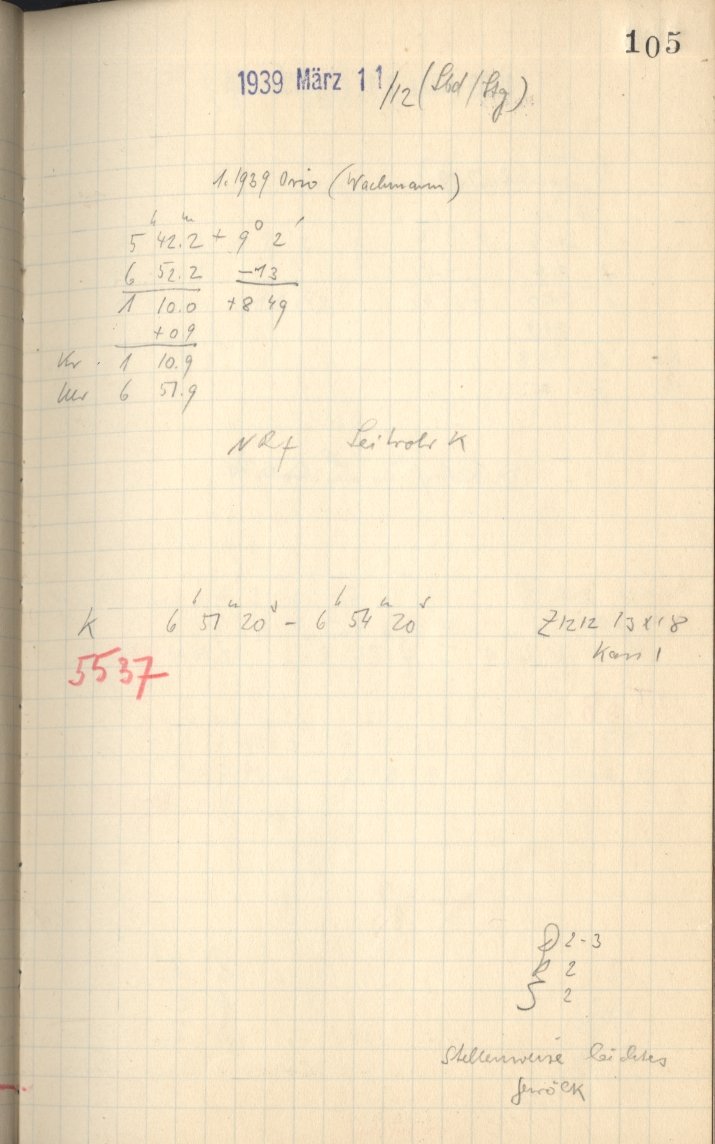 105
1939 März 11/12 (Sbd/Stg)
1.1939 Orio (Wachmann)
5ʰ 42.2ᵐ + 9° 2′
6 52.2 -13
1 10.0 +8 49
+0 9
Kr. 1 10.9
Uhr 6 51.9
Leitrohr K
K 6ʰ 51ᵐ 20ˢ - 6ʰ 54ᵐ 20ˢ
5537 Kass 1
2-3
2
2
Stellenweise leichtes
Gewölk